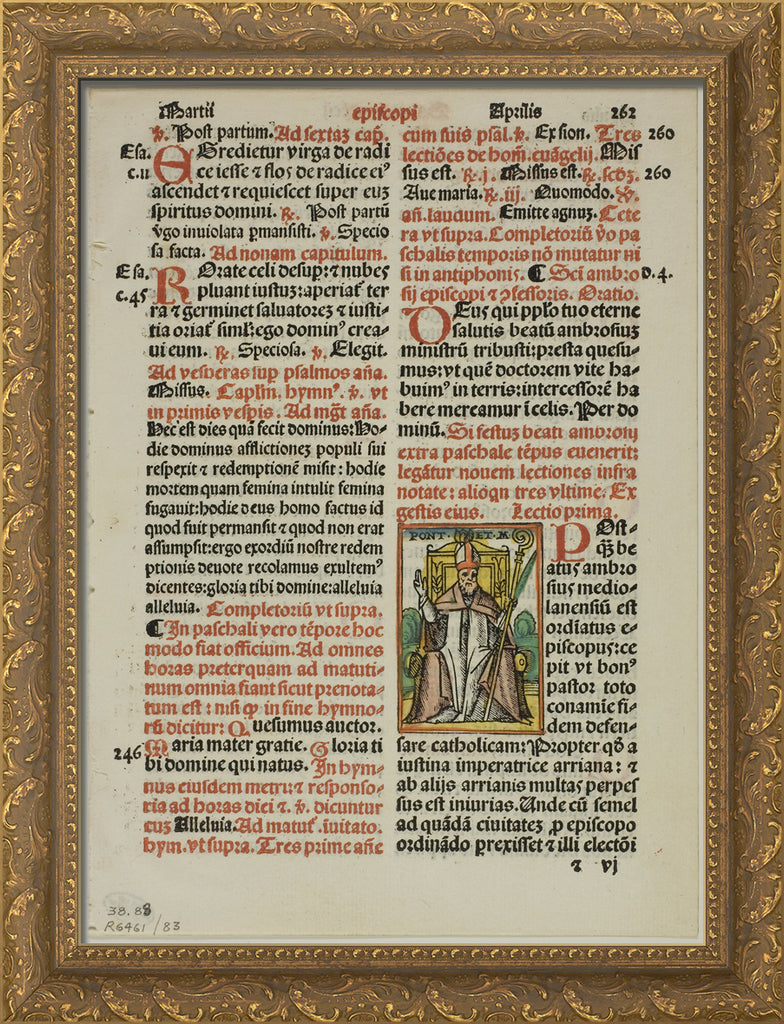 Martii episcopi Aprilis 262
℣. Post partum. Ad sextaz cap̄.
Esa. EGredietur virga de radi
c.11 ce iesse ⁊ flos de radice ei⁹
ascendet ⁊ requiescet super euz
spiritus domini. ℟. Post partū
v̄go inuiolata p̄mansisti. ℣. Specio
sa facta. Ad nonam capitulum.
Esa. ROrate celi desup̱: ⁊ nubes
c.45 pluant iustuz: aperiat᷑ ter
ra ⁊ germinet saluatorez ⁊ iusti⸗
tia oriat᷑ simł: ego domin⁹ crea⸗
ui eum. ℟. Speciosa. ℣. Elegit.
Ad vesperas sup̱ psalmos aña.
Missus. Capłm. hymn⁹. ℣. vt
in primis vesp̱is. Ad mg̃t aña.
Hec est dies quā fecit dominus: Ho⸗
die dominus afflictionez populi sui
respexit ⁊ redemptionē misit: hodie
mortem quam femina intulit femina
fugauit: hodie deus homo factus id
quod fuit permansit ⁊ quod non erat
assumpsit: ergo exordiū nostre redem
ptionis deuote recolamus exultem⁹
dicentes: gloria tibi domine: alleluia
alleluia. Completoriū vt supra.
¶ In paschali vero tēpore hoc
modo fiat officium. Ad omnes
horas preterquam ad matuti⸗
num omnia fiant sicut prenota⸗
tum est: nisi ꝙ in fine hymno⸗
rū dicitur: Quesumus auctor.
246 Maria mater gratie. Gloria ti
bi domine qui natus. In hym⸗
nus eiusdem metri: ⁊ responso⸗
ria ad horas diei ⁊ ℣. dicuntur
cuz Alleluia. Ad matut᷑. īuitato.
hym. vt supra. Tres prime añe
cum suis psal. ℣. Ex sion. Tres 260
lectiōes de hom̄. euāgelij. Mis
sus est. ℟. j. Missus est. ℟. scd̄z. 260
Aue maria. ℟. iij. Quomodo. ℣.
añ. laudum. Emitte agnuz. Cete
ra vt supra. Completoriū v̊o pa
schalis temporis nō mutatur ni
si in antiphonis. ¶ Sci ambro D.4.
sij episcopi ⁊ ꝯfessoris. Oratio.
DEus qui pp̱lo tuo eterne
salutis beatū ambrosiuz
ministrū tribuisti: presta quesu⸗
mus: vt quē doctorem vite ha⸗
buim⁹ in terris: intercessorē ha
bere mereamur ī celis. Per do
minū. Si festuz beati ambrosij
extra paschale tēpus euenerit:
legātur nouem lectiones infra
notate: alioq̄n tres vltime. Ex
gestis eius. Lectio prima.
PONT. ET. M
POst⸗
q̄z be
atus ambro
sius medio⸗
lanensiū est
ordīatus e⸗
piscopus: ce
pit vt bon⁹
pastor toto
conamie fi⸗
dem defen⸗
sare catholicam: Propter qd̊ a
iustina imperatrice arriana: ⁊
ab alijs arrianis multas perpes
sus est iniurias. Unde cū semel
ad quādā ciuitatez p̱ episcopo
ordinādo p̱rexisset ⁊ illi electōi
⁊ vj
38.88
R6461/83